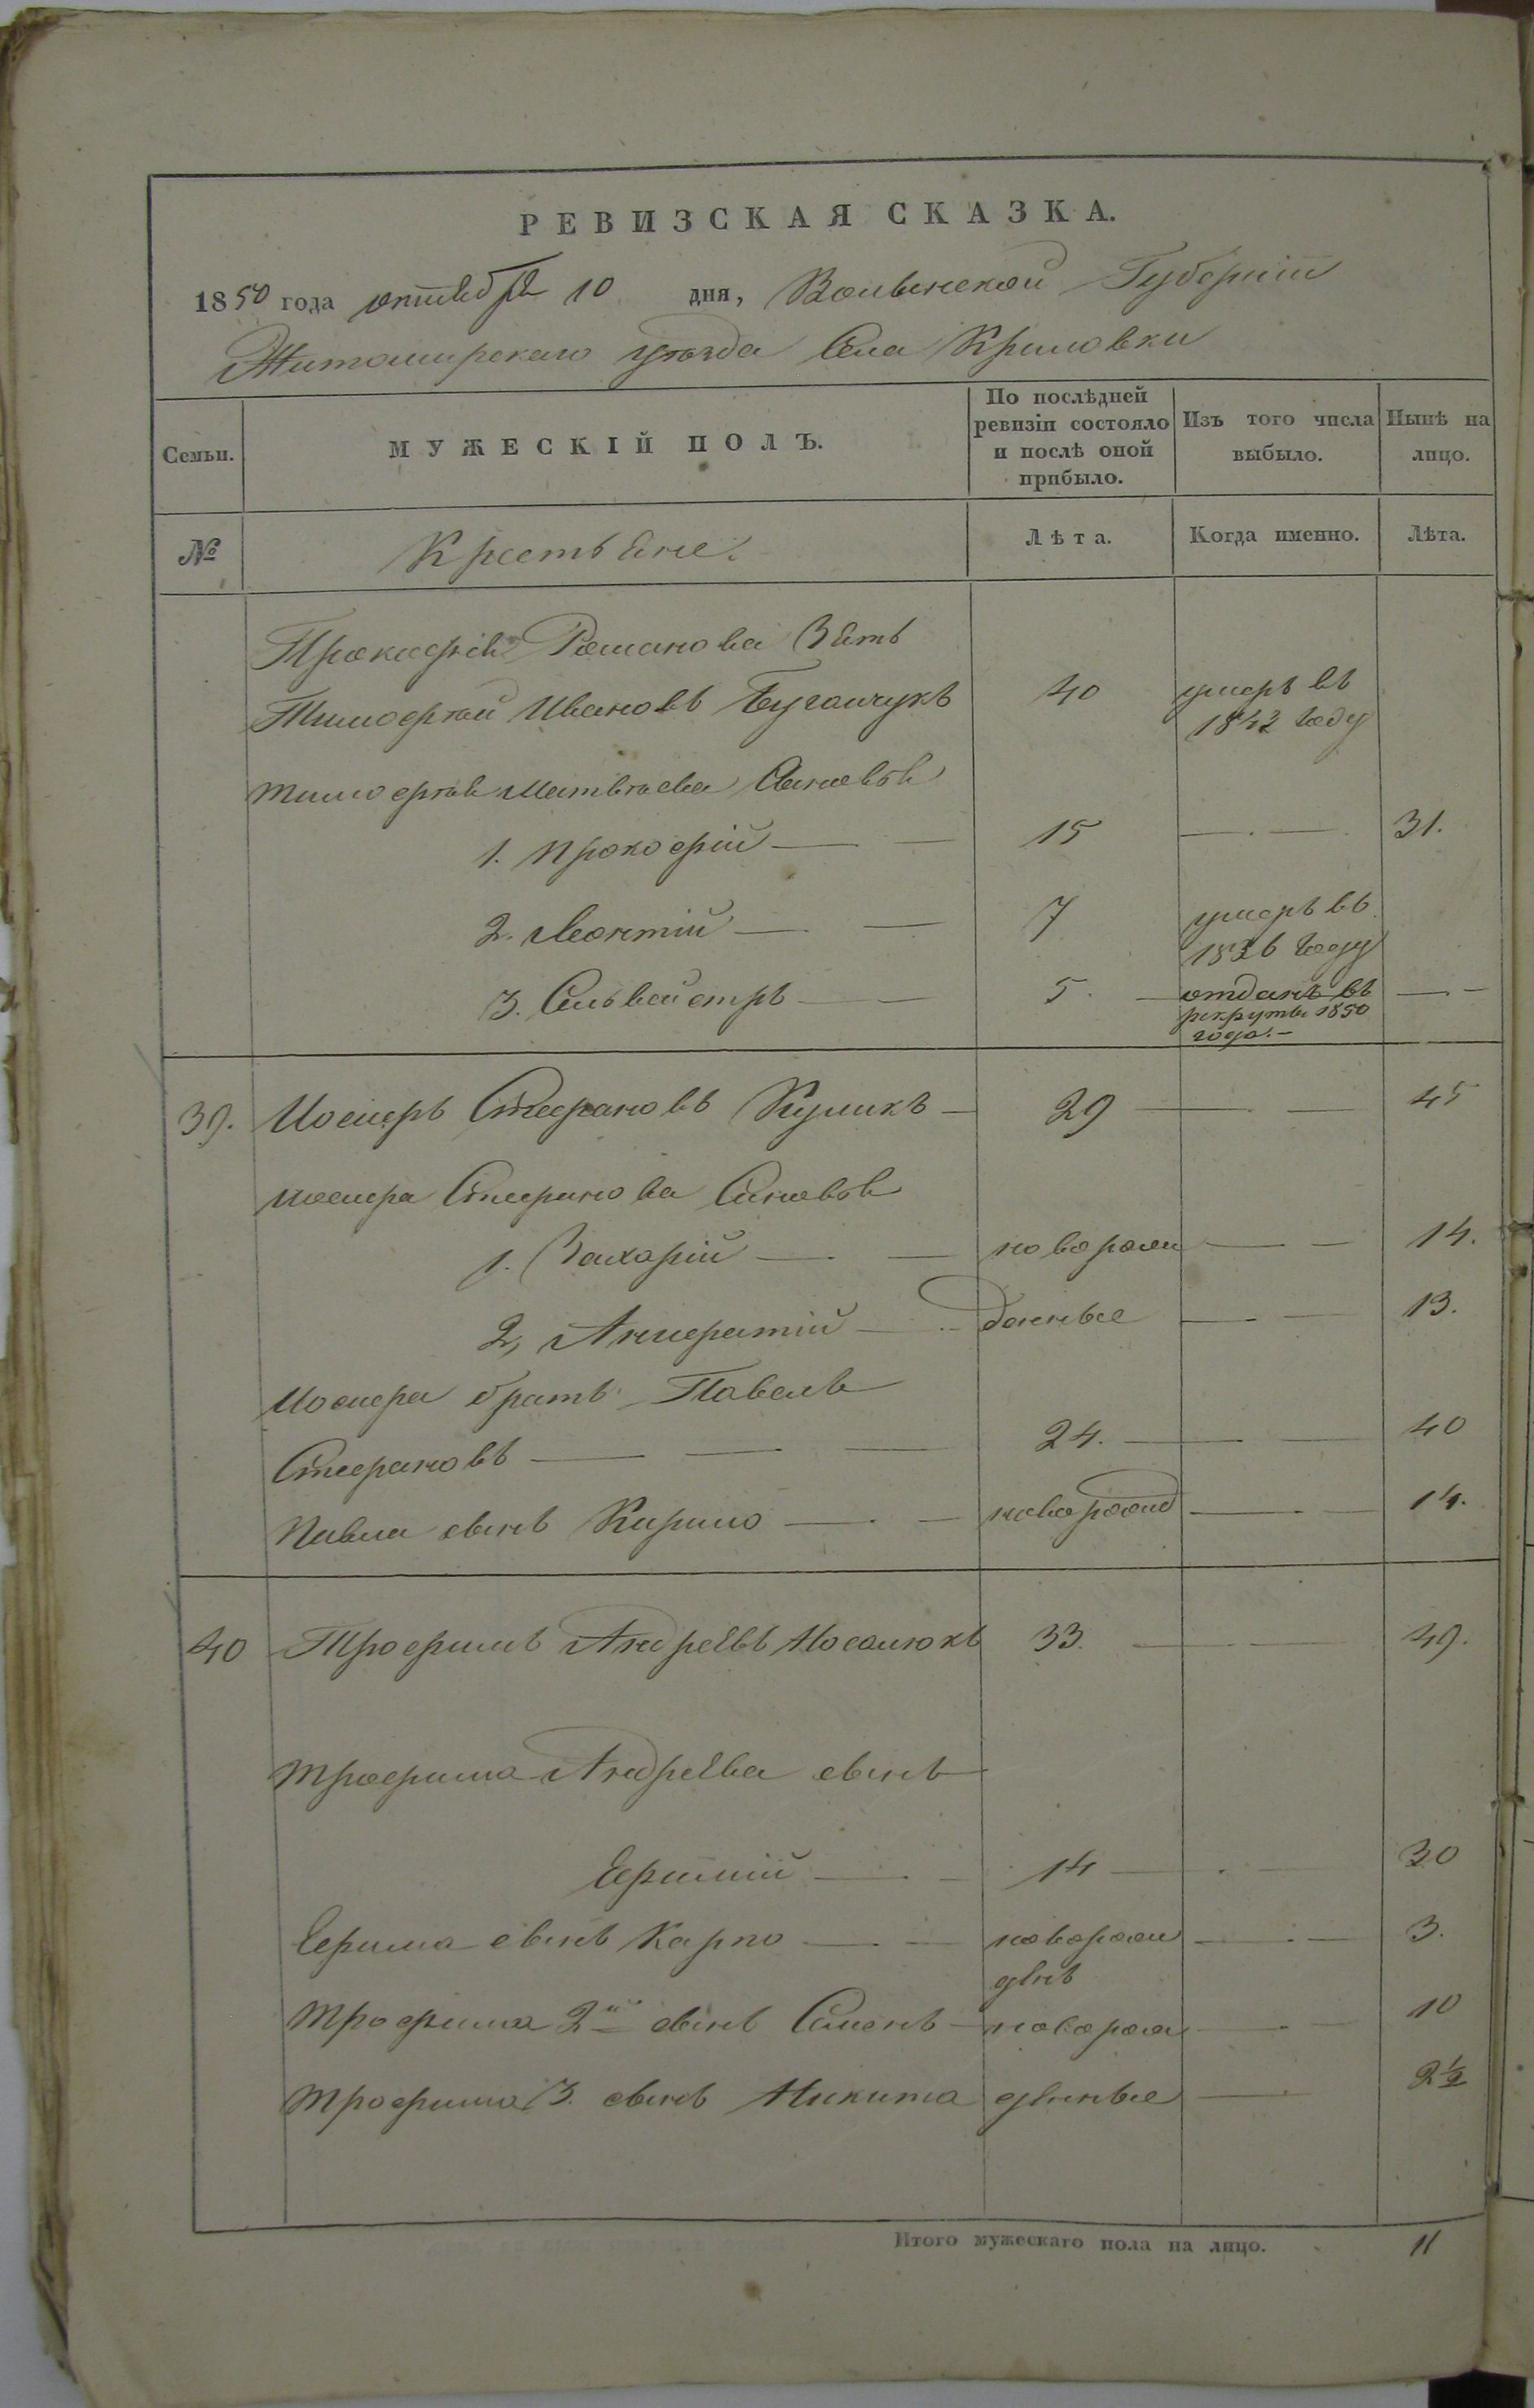 РЕВИЗСКАЯ СКАЗКА.
1850 года октября 10 дня, Волынской Губерніи
Житомирскаго уѣзда Села Крыловки
Семьи.
МУЖЕСКІЙ ПОЛЪ.
По послѣдней ревизіи состояло и послѣ оной прибыло.
Изъ того числа выбыло.
Нынѣ на лицо.
№ Крестьяне. Лѣта. Когда именно. Лѣта.
Прокофія Романова Зять
Тимофѣй Ивановъ 40 умеръ въ
1843 году
Тимофѣя Матвѣева Сыновья
1. Прокофій — — 15 — — 31.
2. Леонтій — — 7 умеръ въ
1836 году
3. Сильвестръ — — 5. — отданъ въ — —
рекруты 1850
года. —
39. Иосифъ Стефановъ Куликъ — 29 — — 45
Иосифа Стефанова Сыновья
1. Захарій — — новорож — — 14.
2, Липератій — — денные — — 13.
Иосифа братъ Павелъ
Стефановъ — — — 24. — — 40
Павла сынъ Кирило — — новорожд — — 14.
40 Трофимъ Андреевъ Мосаюкъ 33. — — 49.
Трофима Андреева сынъ
Ефимій — — 14 — — 30
Ефима сынъ Карпо — — новорож — — 3.
денъ
Трофима 2й сынъ Семенъ — новорож — — 10
Трофима 3. сынъ Никита денные — 2½
Итого мужескаго пола на лицо. 11